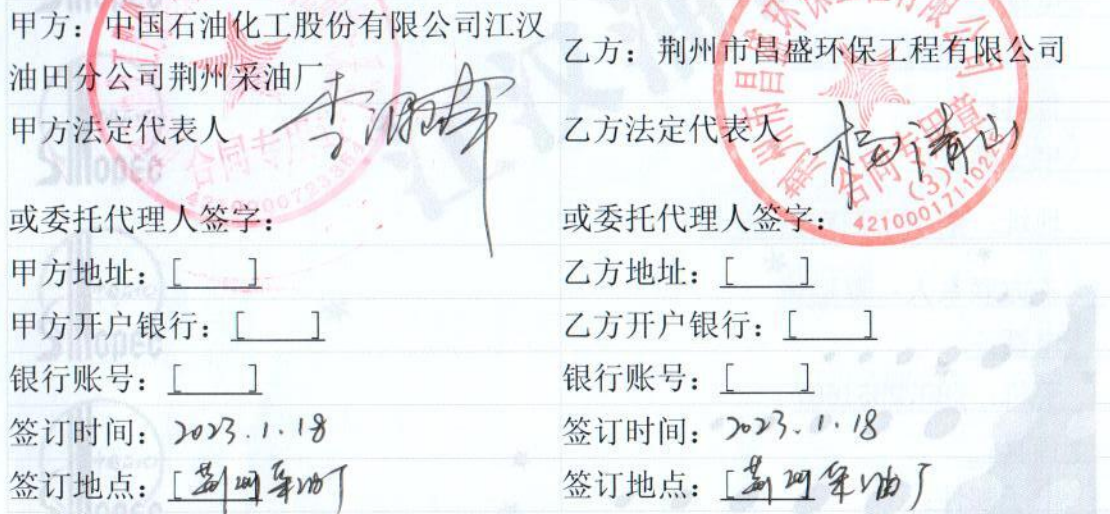 甲方：中国石油化工股份有限公司江汉
油田分公司荆州采油厂
甲方法定代表人
或委托代理人签字：
甲方地址：[ ]
甲方开户银行：[ ]
银行账号：[ ]
签订时间：2023.1.18
签订地点：[荆州采油厂
乙方：荆州市昌盛环保工程有限公司
乙方法定代表人
或委托代理人签字：
乙方地址：[ ]
乙方开户银行：[ ]
银行账号：[ ]
签订时间：2023.1.18
签订地点：[荆州采油厂
合同专用章
(3)